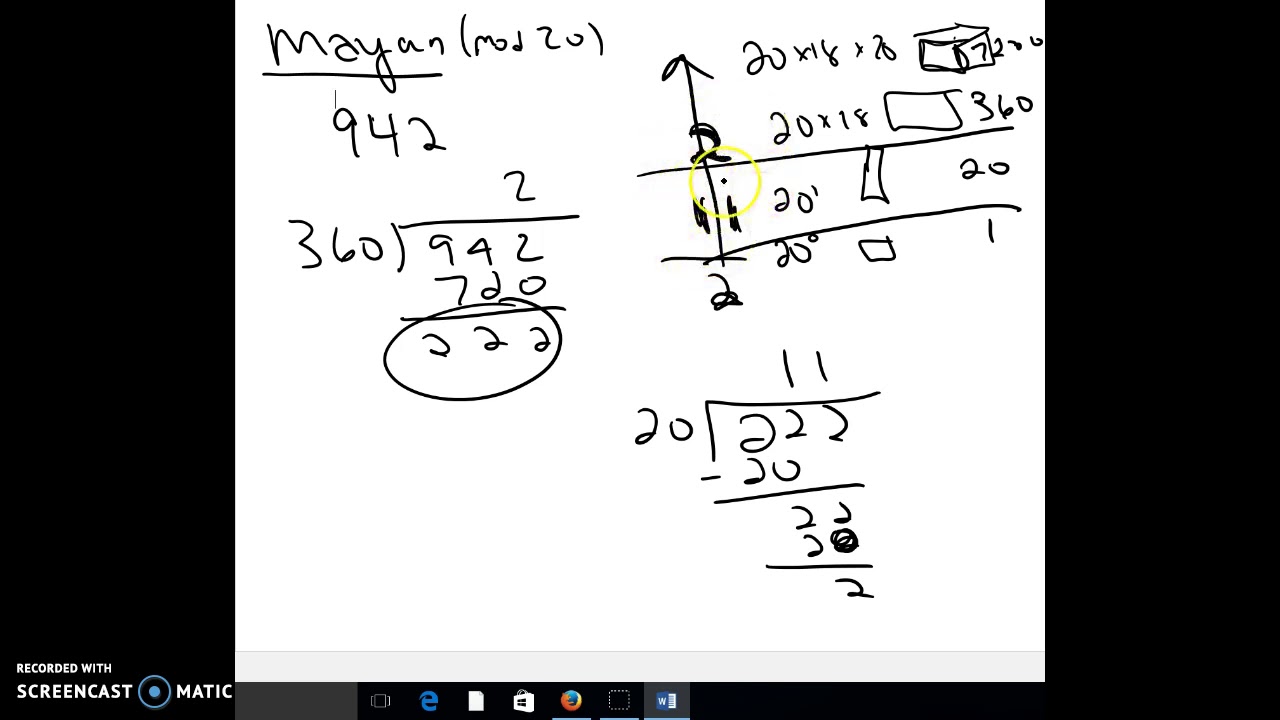 Mayan (mod 20)
942
2
360) 942
720
222
20×18×20 7200
20×18 360
2
20
11 20¹
20⁰ 1
2
11
20 222
- 20
22
20
2
RECORDED WITH
SCREENCAST MATIC